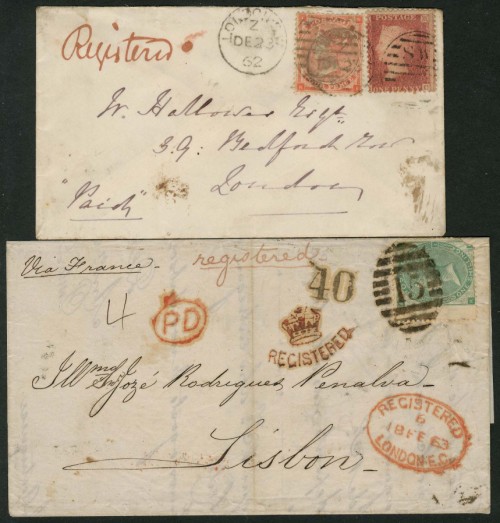 Registered
Z
DE 23
62
POSTAGE
ONE PENNY
W. Halloway Esqre
39. Bedford Row
"Paid"
London
Via France
registered
40
13
4
PD
REGISTERED
Illmo Snr Jozé Rodrigues Penalva
Lisbon
REGISTERED
6
18 FE 63
LONDON E.C.